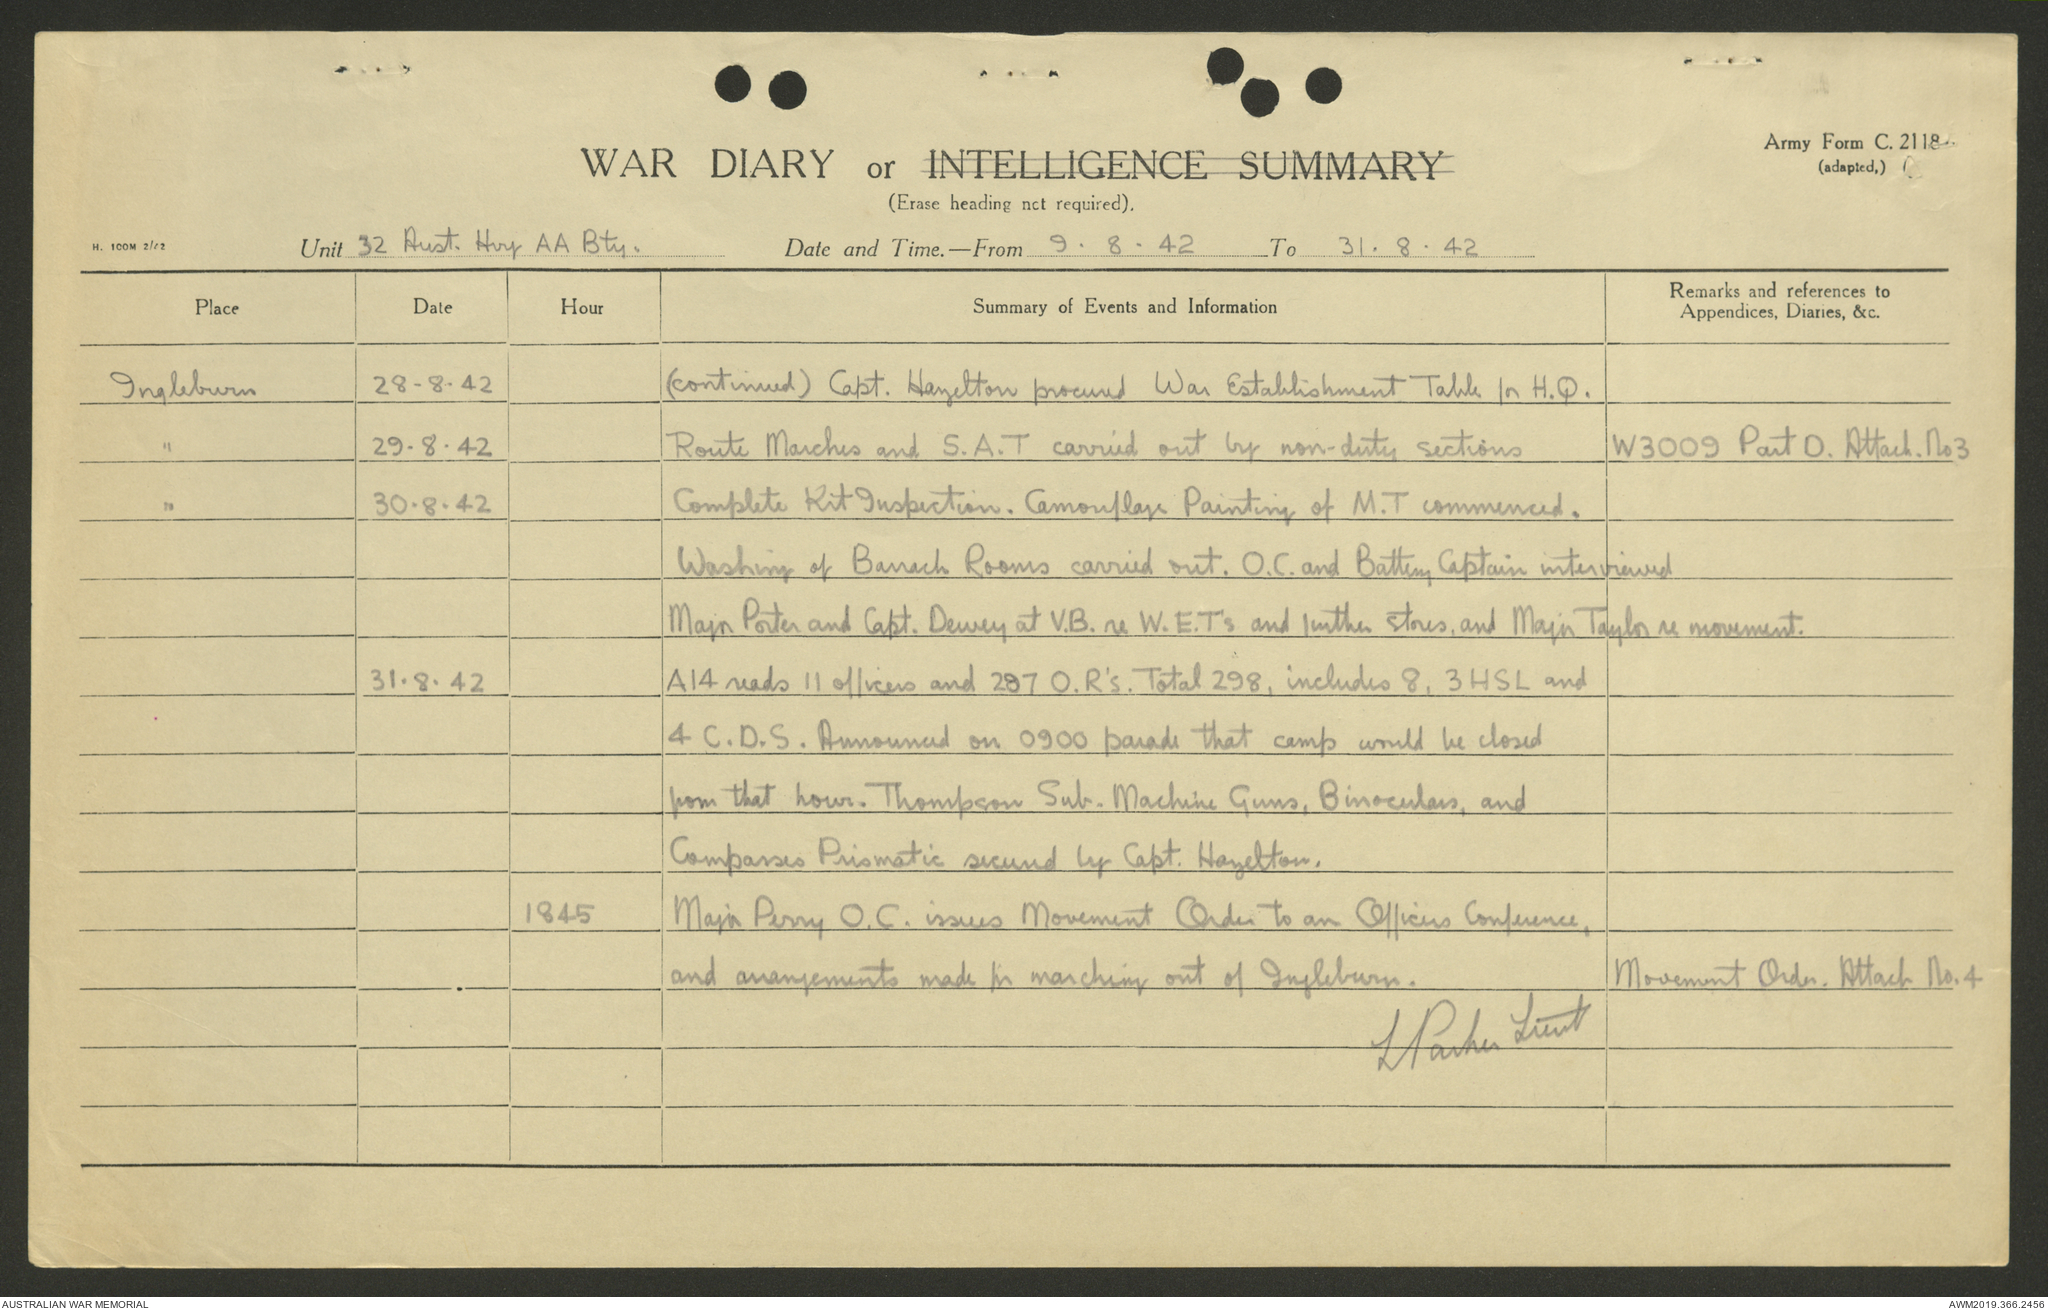 WAR DIARY or INTELLIGENCE SUMMARY
(Erase heading not required).
Army Form C. 2118.
(adapted,)
H. 100M 2/42
Unit 32 Aust. Hvy AA Bty. Date and Time.—From 9.8.42 To 31.8.42
Place Date Hour Summary of Events and Information Remarks and references to Appendices, Diaries, &c.
Ingleburn 28-8-42 (continued) Capt. Hazelton procured War Establishment Table for H.Q.
" 29-8-42 Route Marches and S.A.T carried out by non-duty sections W3009 Part D. Attach. No 3
" 30.8.42 Complete Kit Inspection. Camouflage Painting of M.T commenced.
Washing of Barrack Rooms carried out. O.C. and Battery Captain interviewed
Major Porter and Capt. Dewey at V.B. re W.E.T's and further stores, and Major Taylor re movement.
31.8.42 A14 reads 11 officers and 287 O.R's. Total 298, includes 8, 3 HSL and
4 C.D.S. Announced on 0900 parade that camp would be closed
from that hour. Thompson Sub-Machine Guns, Binoculars, and
Compasses Prismatic secured by Capt. Hazelton.
1845 Major Perry O.C. issues Movement Order to an Officers Conference,
and arrangements made for marching out of Ingleburn. Movement Order. Attach No. 4
L Parker Lieut
AUSTRALIAN WAR MEMORIAL AWM2019.366.2456